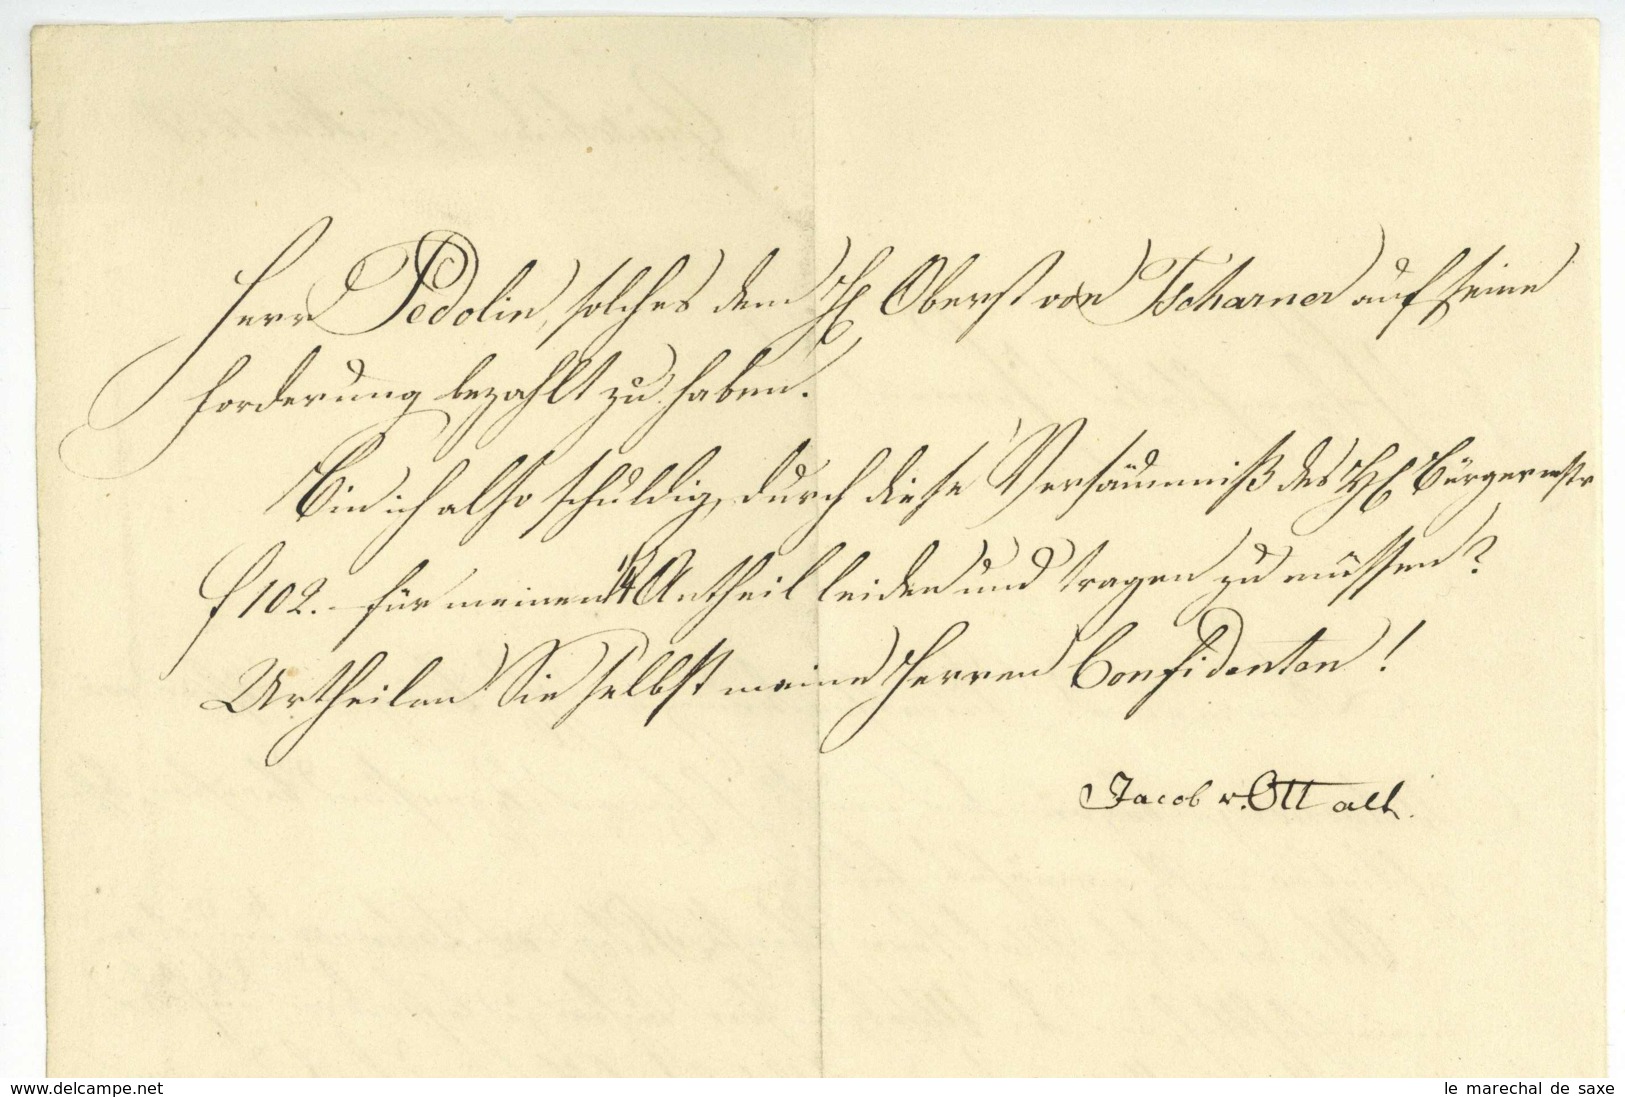 Herr Pedolin, solches dem H Oberst von Tscharner auf seine
Forderung bezahlt zu haben.
Bin ich also schuldig, durch diese Versäumniß des H Bürgermstr
f 102.- für meinen 1/4 Antheil leiden und tragen zu müssen?
Urtheilen Sie selbst meine Herren Confidenten!
Jacob v. Ott alt.
www.delcampe.net
le marechal de saxe